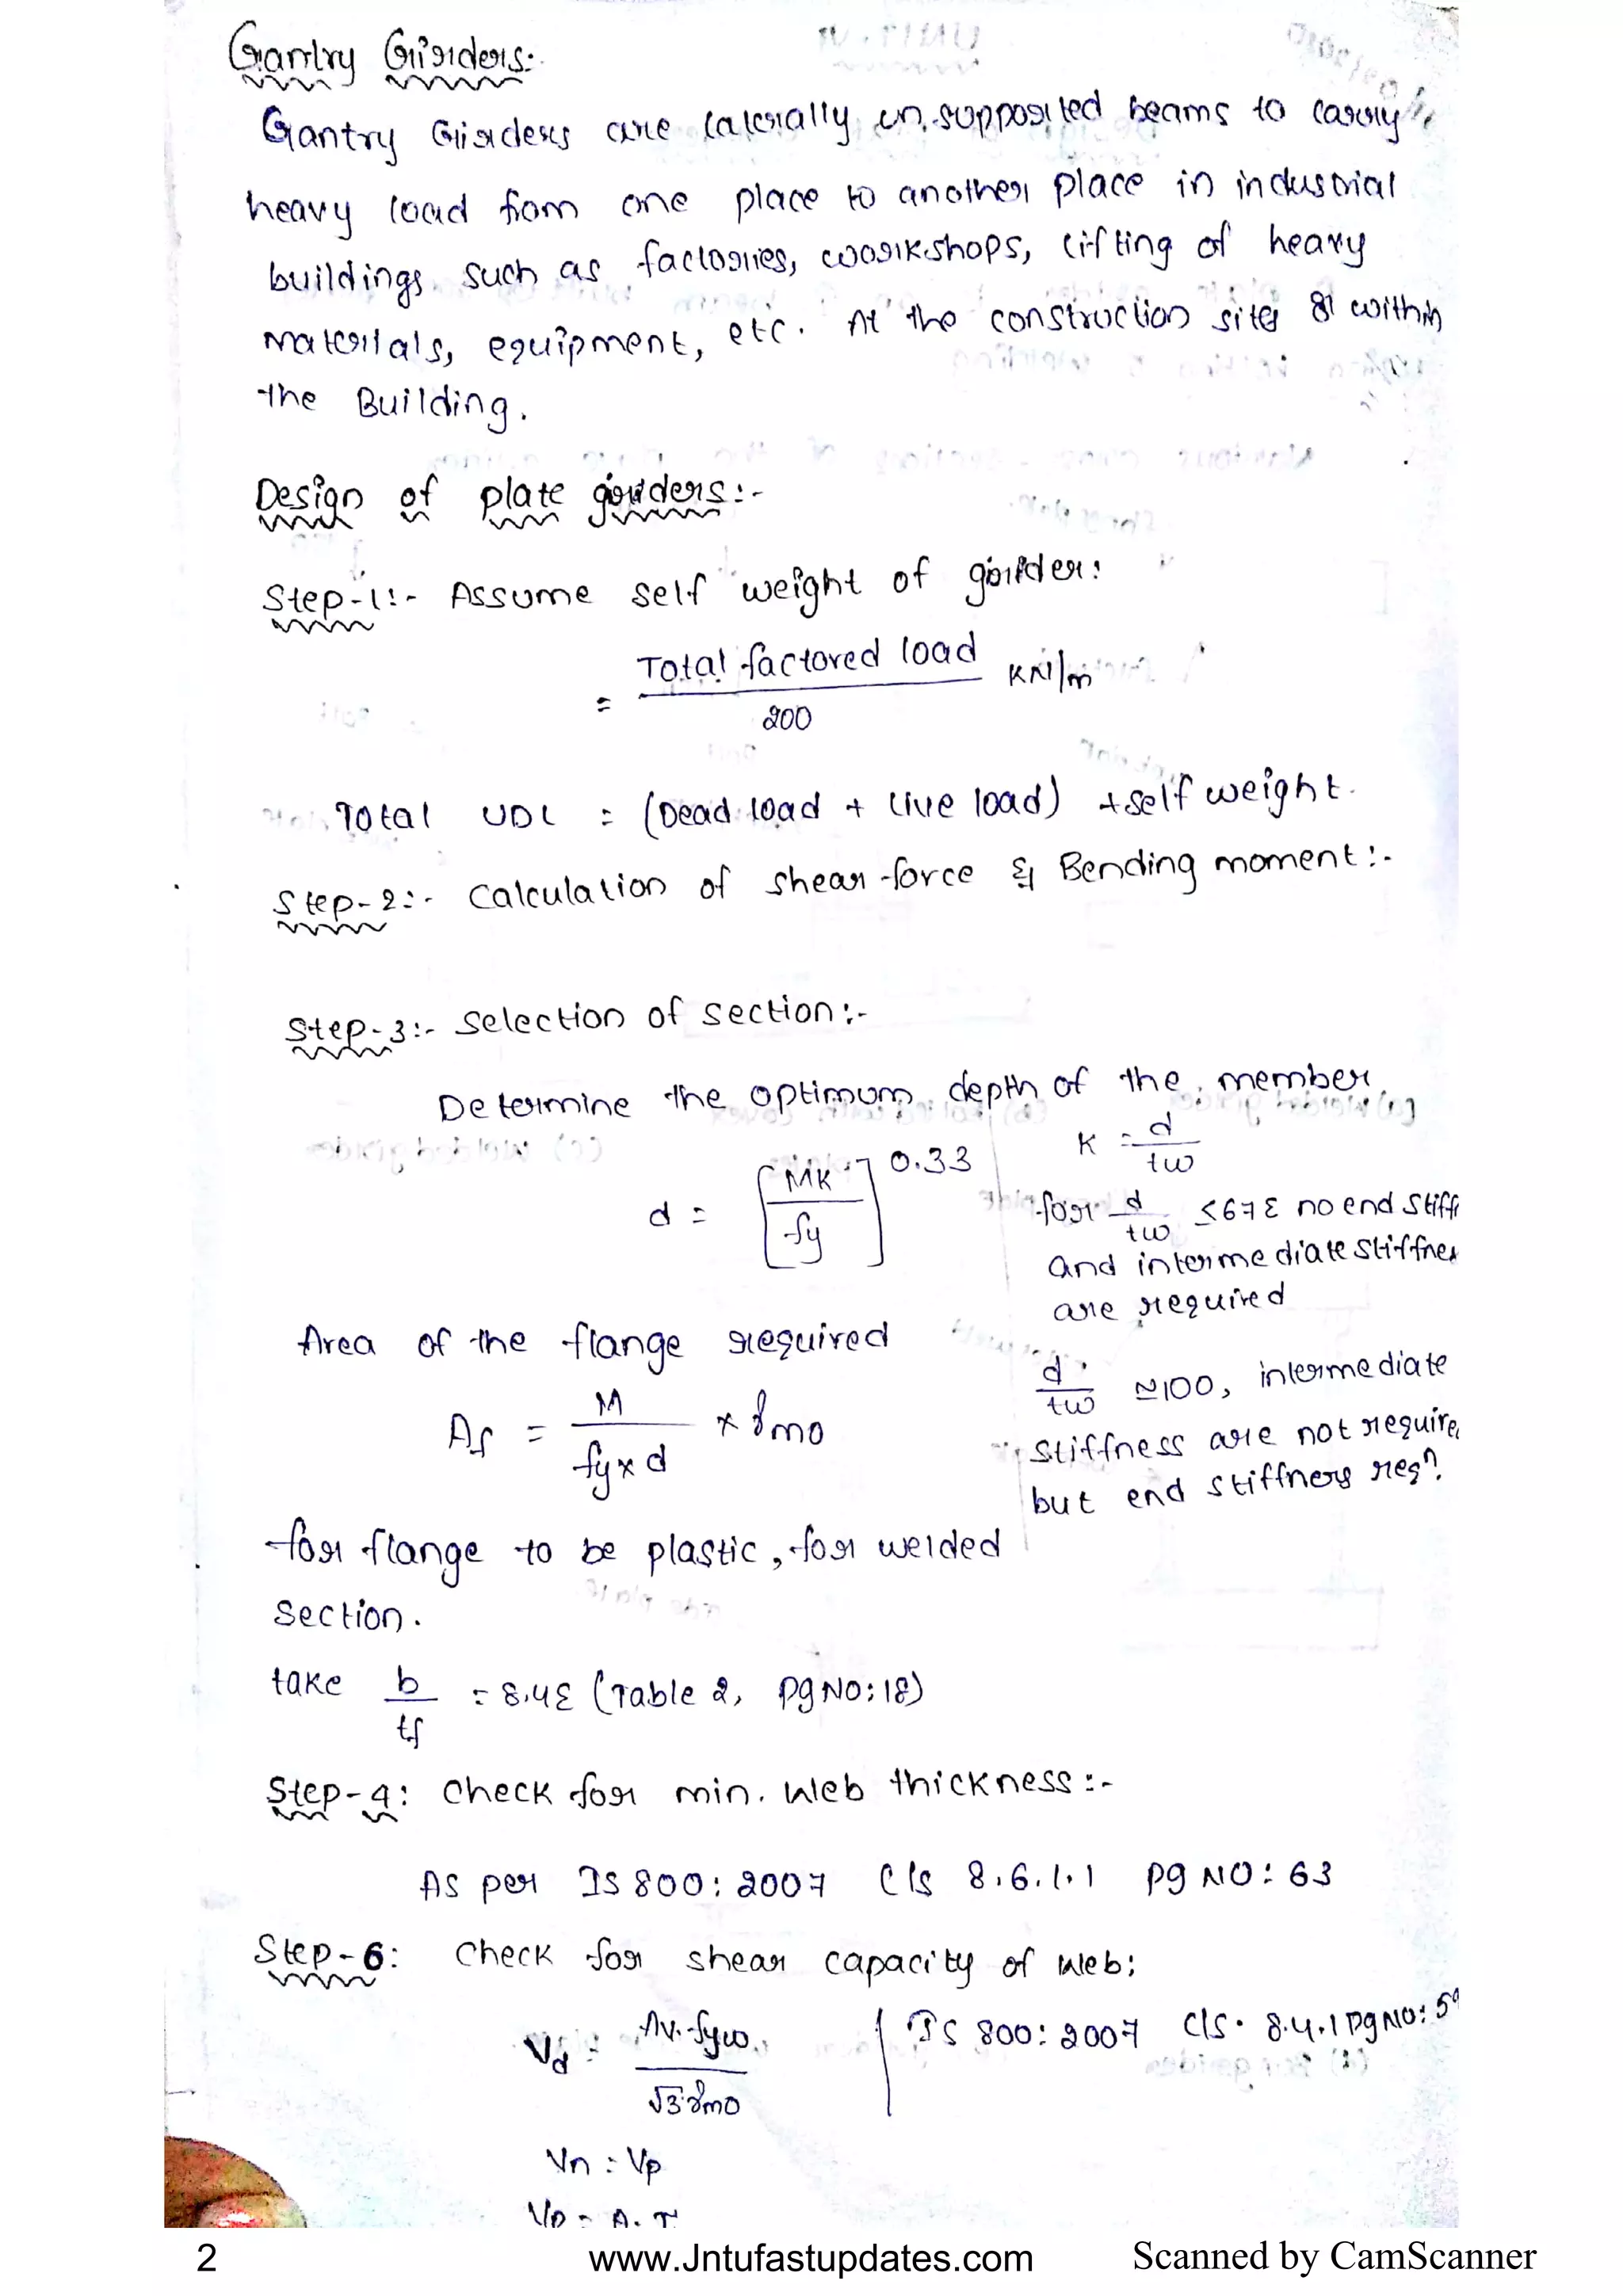 Gantry Girders:
Gantry Girders are laterally un-supported beams to carry
heavy load from one place to another place in industrial
buildings such as factories, workshops, lifting of heavy
materials, equipment, etc. At the construction sites & within
the Building.
Design of plate girders:-
Step-1:- Assume self weight of girder:
= Total factored load / 200 KN/m
Total UDL = (Dead load + Live load) + self weight.
Step-2:- Calculation of shear force & Bending moment:-
Step-3:- Selection of section:-
Determine the optimum depth of the member.
d = [MK / fy]^0.33
K = d / tw
for d / tw ≤67ε no end stiff
and intermediate stiffnes
are required
d / tw ≃100, intermediate
stiffness are not require
but end stiffness reqn.
Area of the flange required
Af = M / fy×d × γmo
for flange to be plastic, for welded
Section.
take b / tf = 8.4ε (Table 2, Pg NO: 18)
Step-4: Check for min. Web thickness:-
As per IS 800: 2007 Cls 8.6.1.1 Pg NO: 63
Step-6: Check for shear capacity of web:
Vd = Av.fyw / √3 γmo
IS 800: 2007 Cls. 8.4.1 Pg NO: 59
Vn = Vp
2
www.Jntufastupdates.com
Scanned by CamScanner